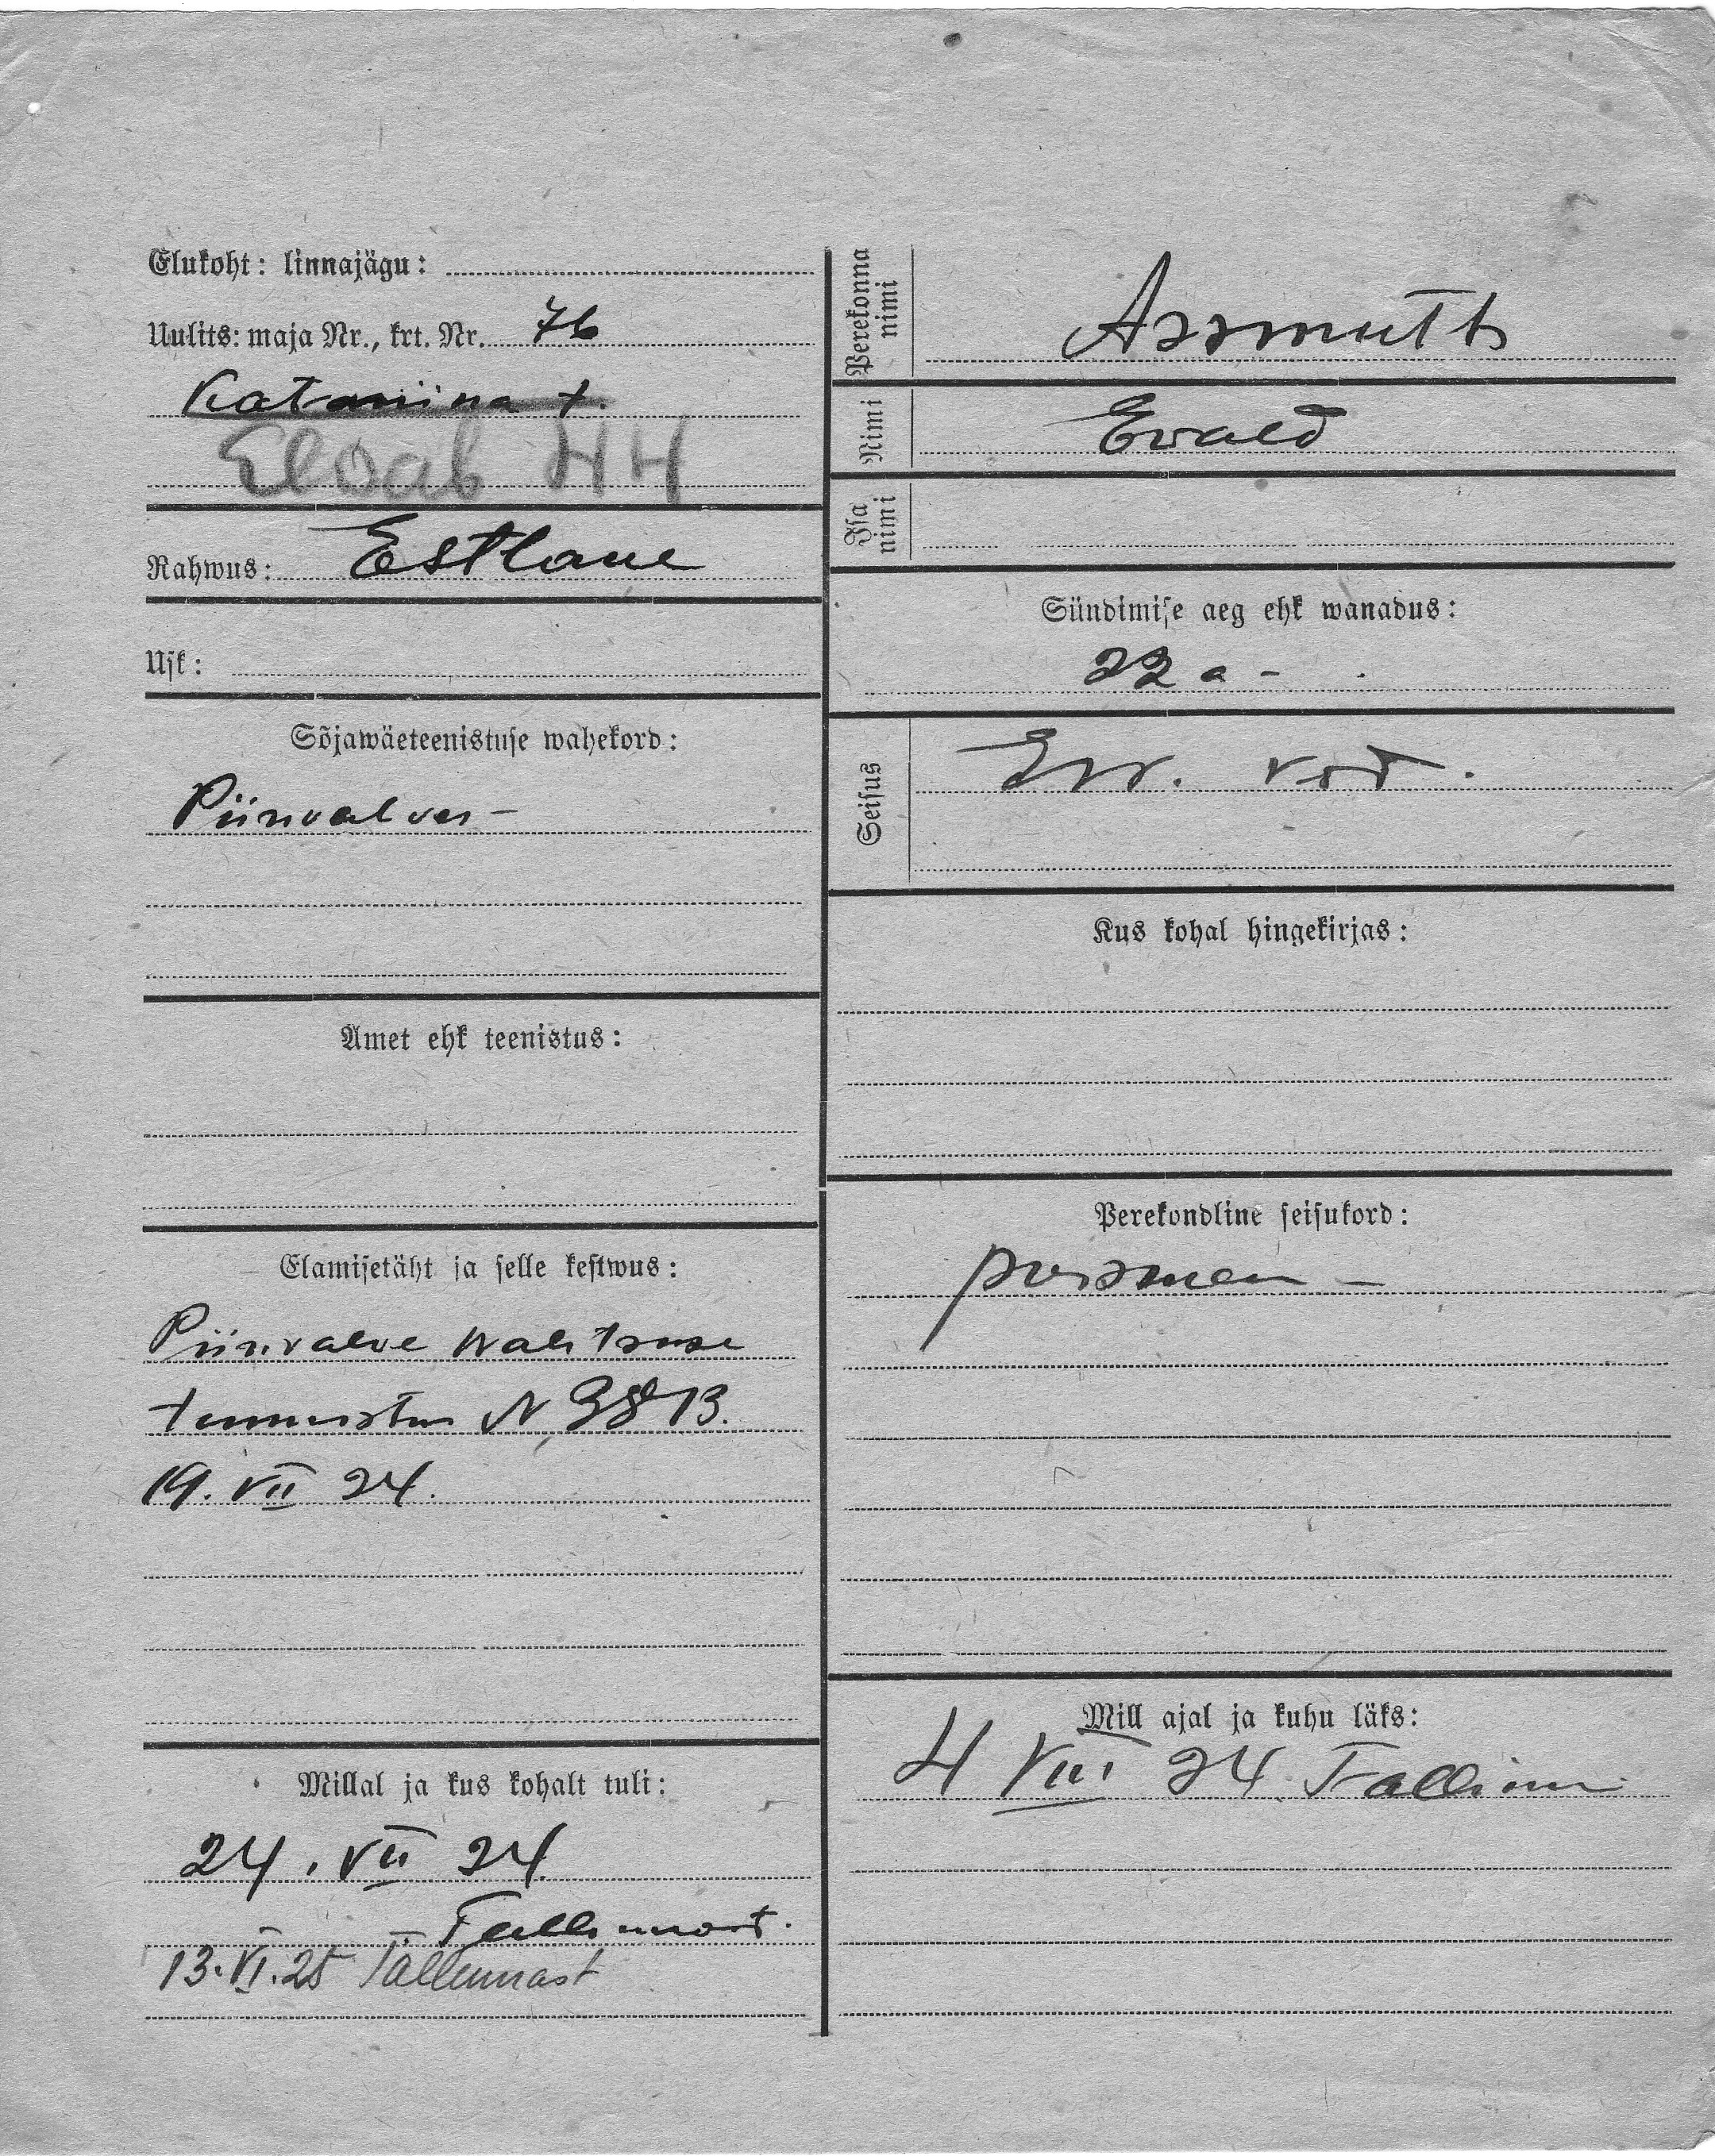 Elukoht: linnajägu:
Uulits: maja Nr., krt. Nr. 76
Katariina t.
Elsab 44
Rahwus: Estlane
Usk:
Sõjawäeteenistuse wahekord:
Piirivalves -
Amet ehk teenistus:
Elamisetäht ja selle kestwus:
Piirivalve Walitsuse
tunnistus N 3813.
19. VII 24.
Millal ja kus kohalt tuli:
24. VII 24.
Tallinnast.
13. VI. 25 Tallinnast
Perekonna nimi
Assmuth
Nimi Evald
Isa nimi
Sündimise aeg ehk wanadus:
22 a -
Seisus
Ew. vab.
Kus kohal hingekirjas:
Perekondline seisukord:
poissmees -
Mill ajal ja kuhu läks:
4 VIII 24. Tallinna